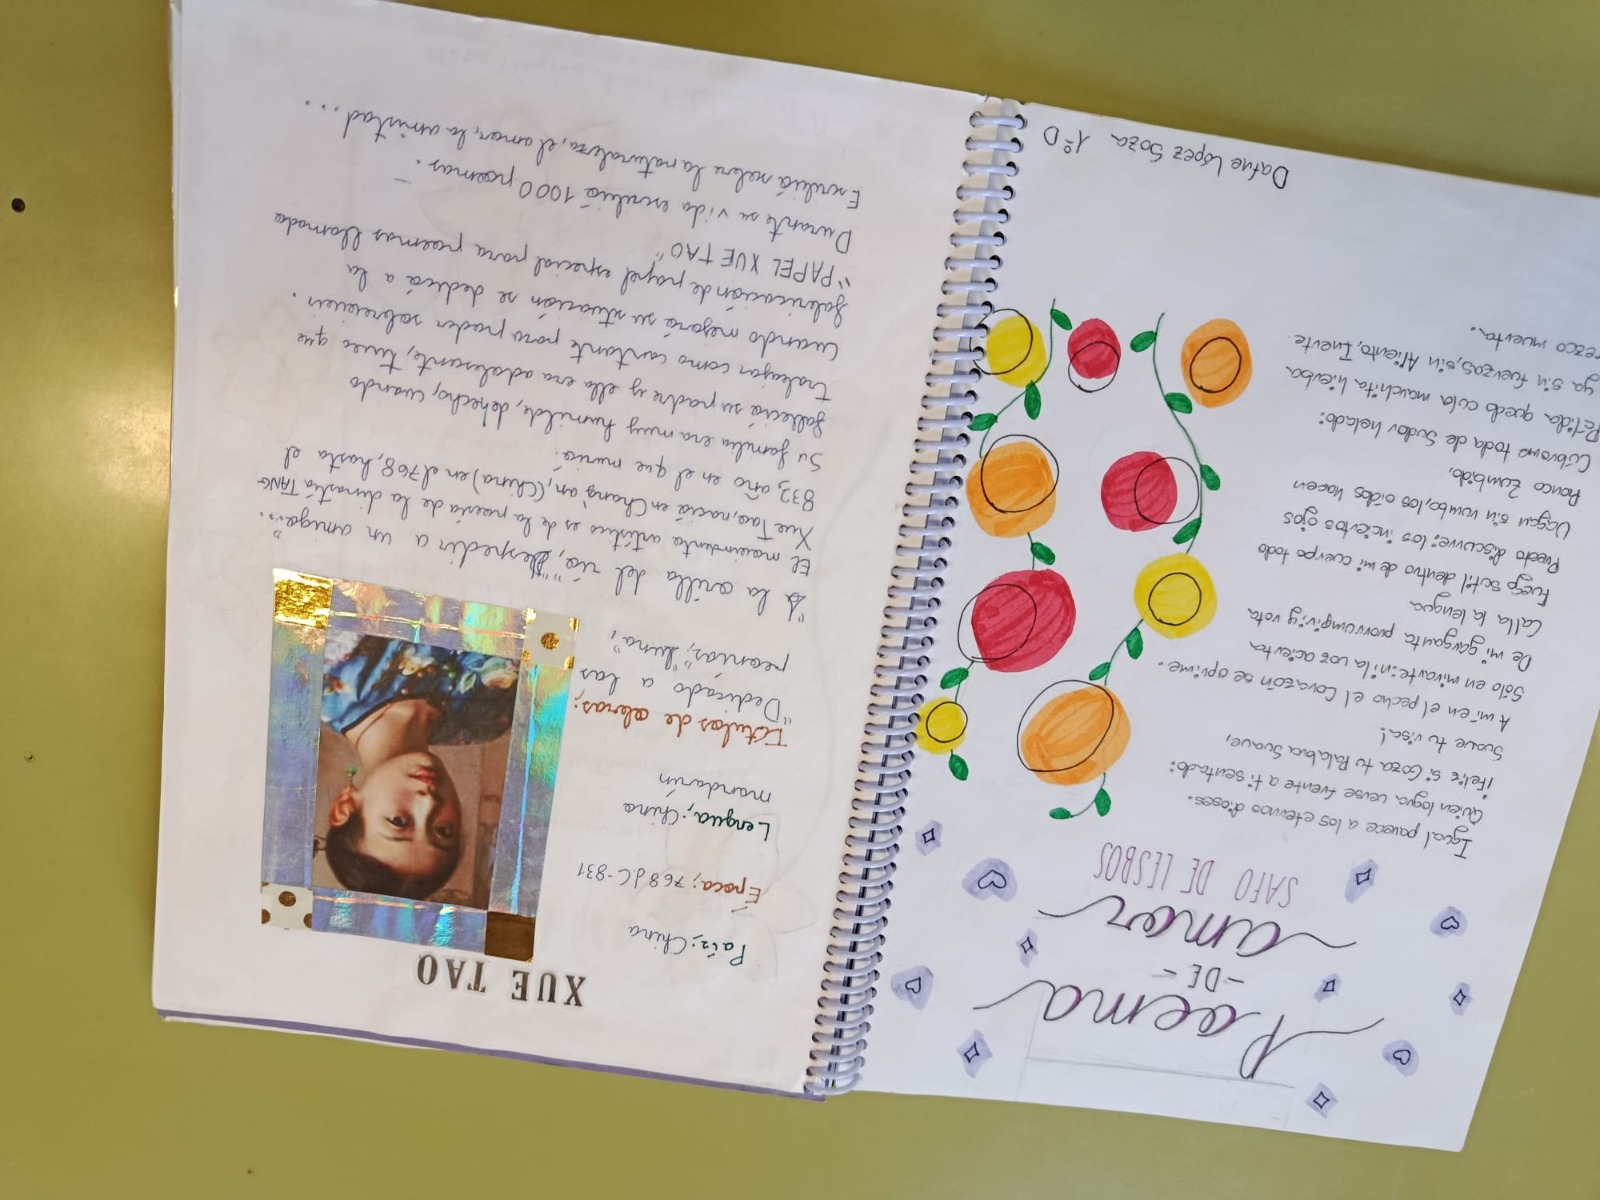 Poema
- DE -
amor
SAFO DE LESBOS
Igual parece a los eternos dioses.
Quien logra verse frente a ti sentado:
¡Feliz si Goza tu Palabra Suave,
Suave tu risa!
A mí en el pecho el Corazón se oprime.
Sólo en mirarte: ni la voz acierta
De mi garganta prorrumpir; y rota
Calla la lengua
Fuego sutil dentro de mi cuerpo todo
Puedo discurrir: los inciertos ojos
Vagan sin rumbo, los oídos hacen
Ronco Zumbido.
Cubrome toda de Sudor helado:
quedo cula marchita hierba
ya sin fuerzas, sin Aliento, Inerte.
muerta.
Dafne López Soza 1º D
XUE TAO
País; China
Época; 768 d C - 831
Lengua; Chino
mandarín
Títulos de obras;
"Dedicado a las
peonías", "Luna",
"A la orilla del río", "Despedir a un amigo"..
El movimiento artístico es de la poesía de la dinastía TANG
Xue Tao, nació en Chang'an, (China) en el 768, hasta el
832, año en el que murió.
Su familia era muy humilde, dehecho, cuando
falleció su padre y ella era adolescente, tuvo que
trabajar como cantante para poder sobrevivir.
Cuando mejoró su situación se dedicó a la
fabricación de papel especial para poemas llamado
"PAPEL XUE TAO"
Durante su vida escribió 1000 poemas.
Escribió sobre la naturaleza, el amor, la amistad...